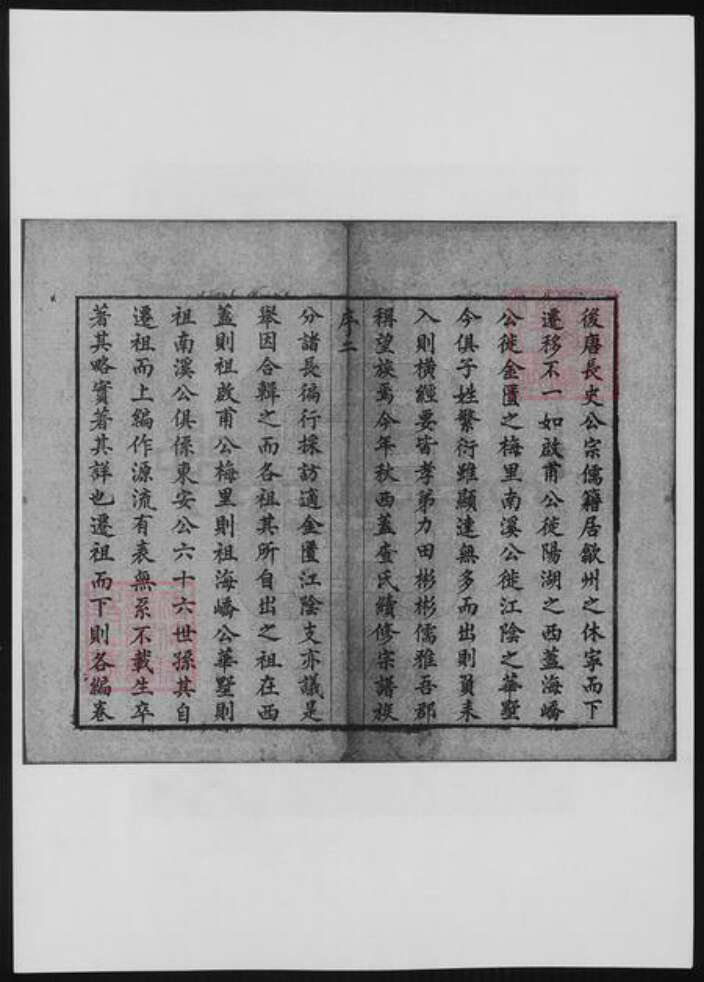 後唐長史公宗儒籍居歙州之休寧而下
遷移不一如啟甫公徙陽湖之西蓋海嶠
公徙金匱之梅里南溪公徙江陰之華墅
今俱子姓繁衍雖顯達無多而出則負耒
入則橫經要皆孝弟力田彬彬儒雅吾郡
稱望族焉今年秋西蓋查氏續修宗譜族
序二
分諸長徧行採訪適金匱江陰支亦議是
舉因合輯之而各祖其所自出之祖在西
蓋則祖啟甫公梅里則祖海嶠公華墅則
祖南溪公俱係東安公六十六世孫其自
遷祖而上編作源流有表無系不載生卒
著其略實著其詳也遷祖而下則各編卷